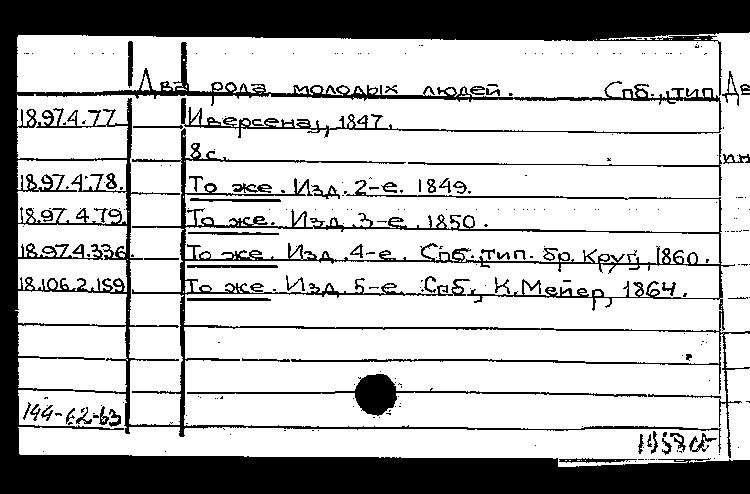 Два рода молодых людей. Спб., тип. Дв
18.97.4.77. Иверсена, 1847.
8с. ин
18.97.4.78. То же. Изд. 2-е. 1849.
18.97.4.79. То же. Изд. 3-е. 1850.
18.97.4.336. То же. Изд. 4-е. Спб., тип. бр. Круг, 1860.
18.106.2.159 То же. Изд. 5-е. Спб., К. Мейер, 1864.
144-62-63